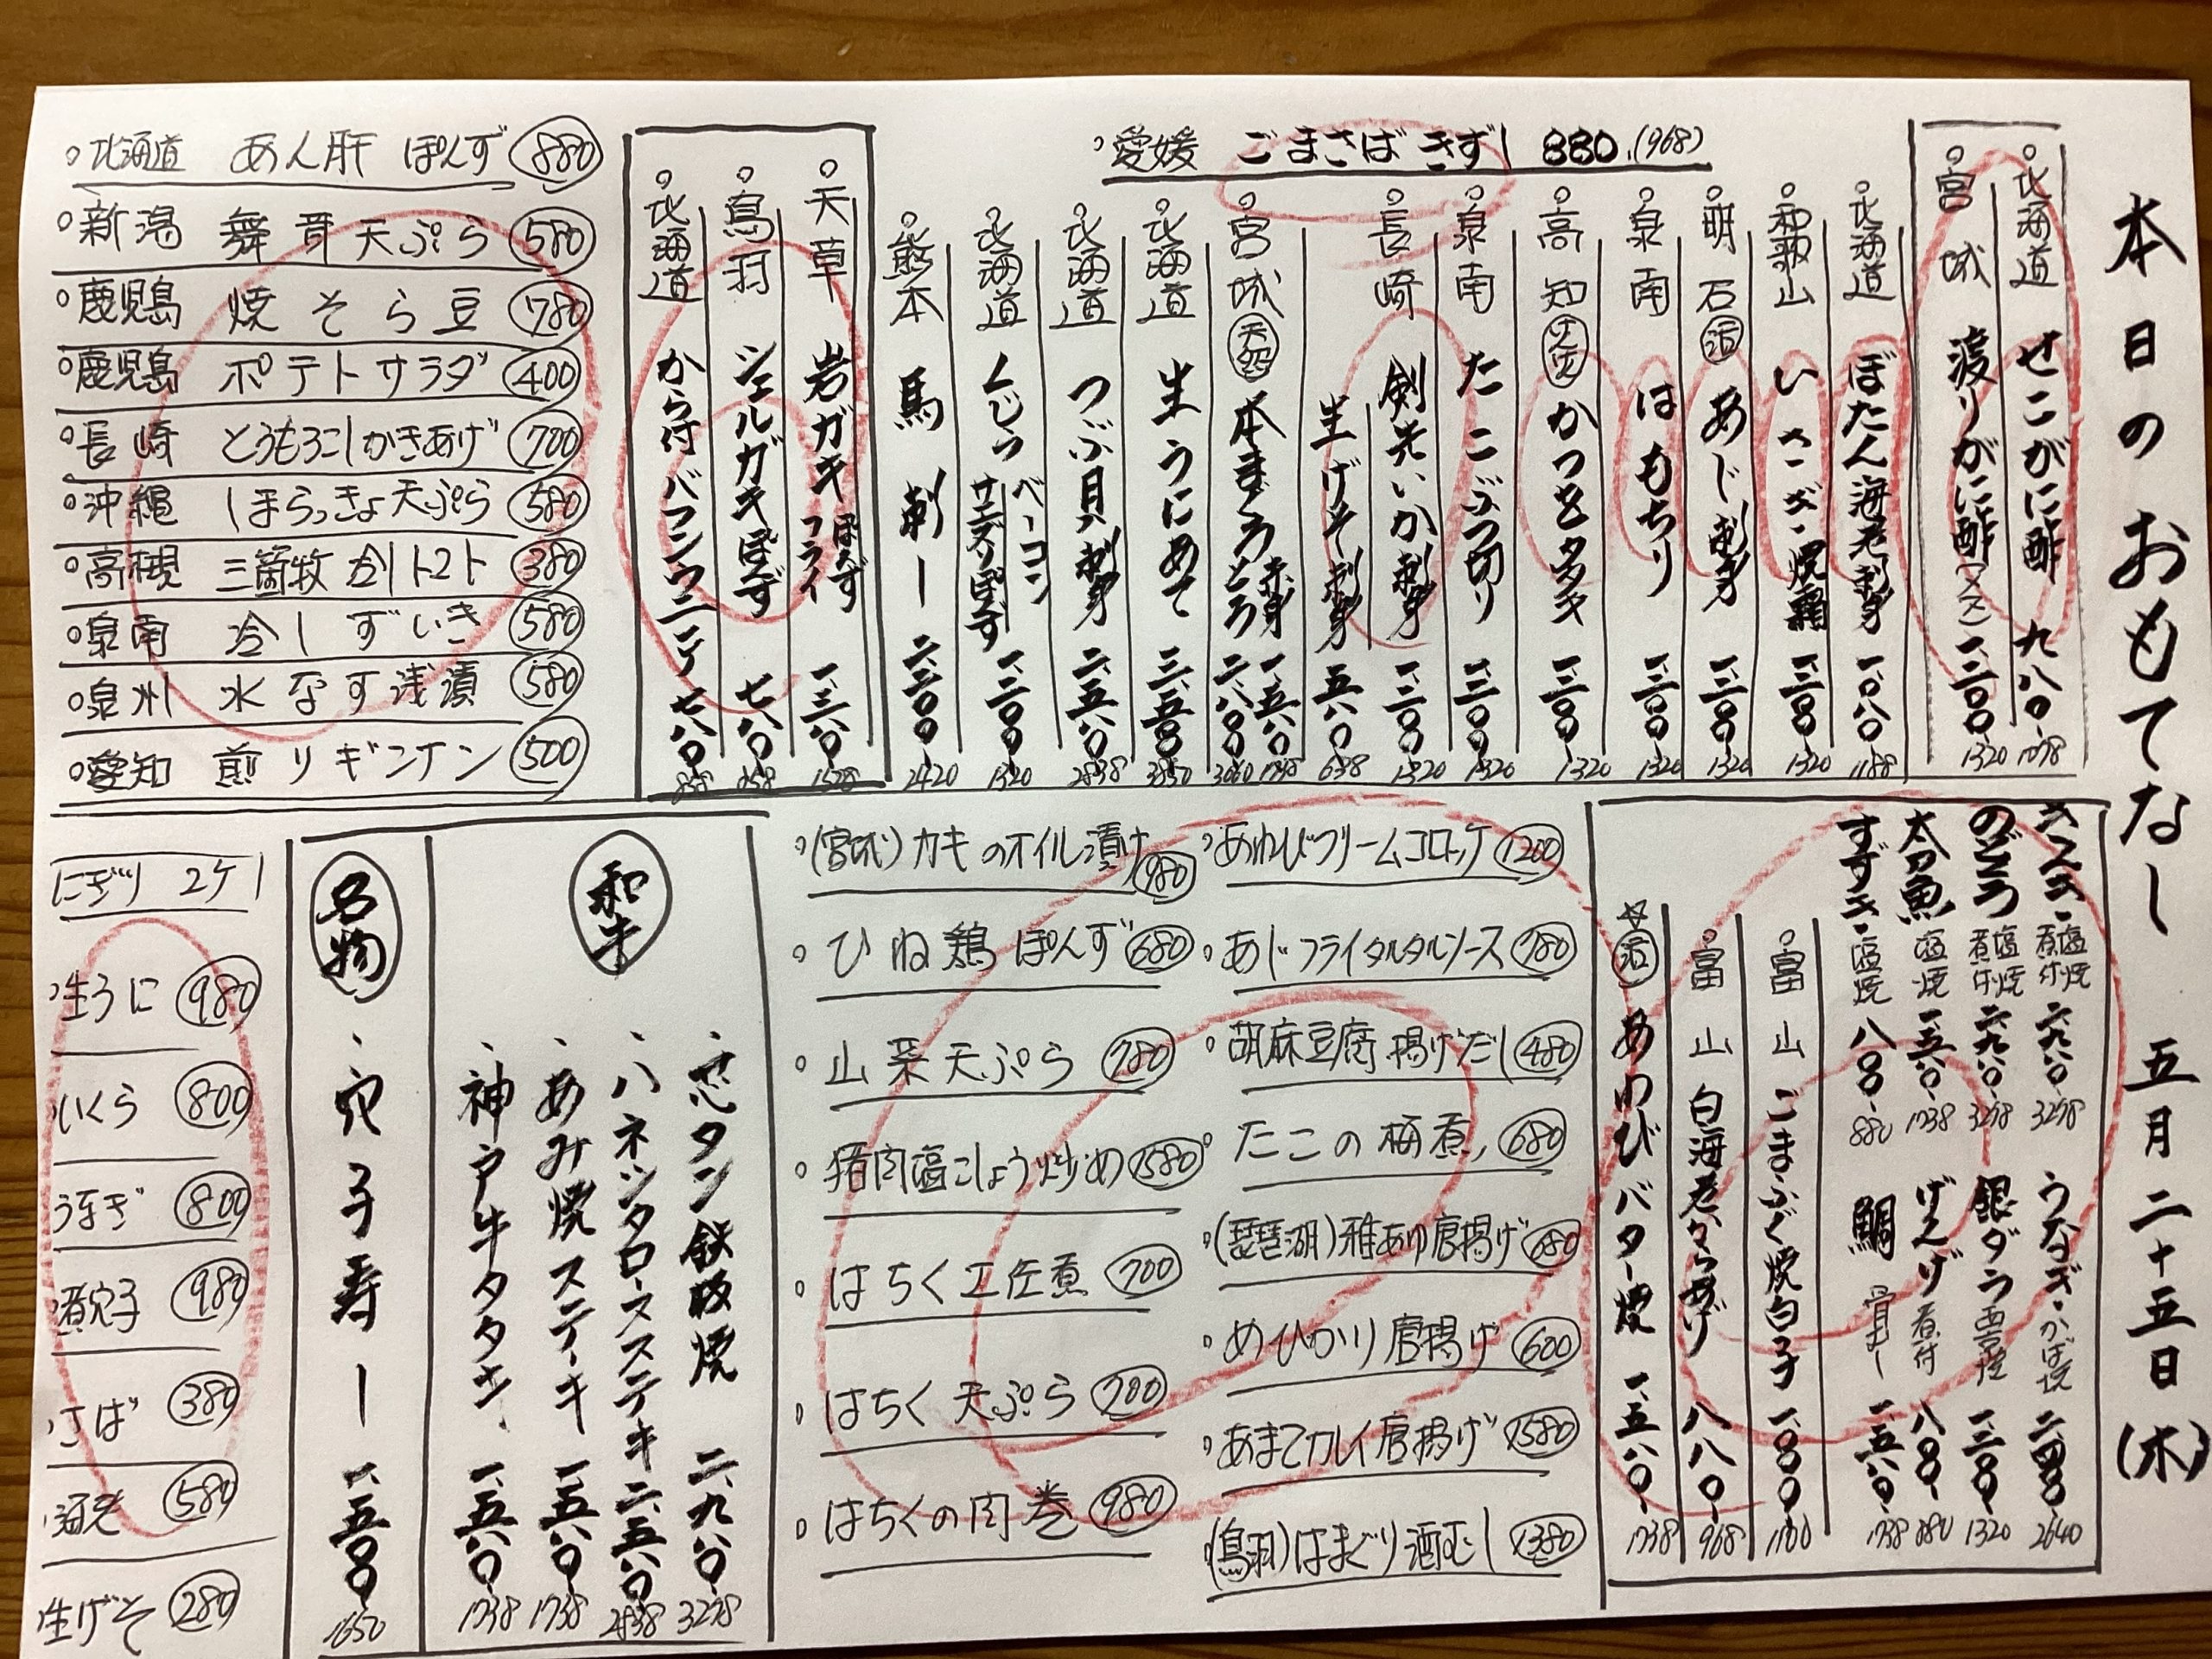 本日のおもてなし 五月二十五日(木)
北海道 せこがに酢 九八〇 1078
宮城 渡りがに酢(メス) 一、二〇〇 1320
愛媛 ごまさばきずし 880.(968)
北海道 ぼたん海老刺身 一、〇八〇 1188
和歌山 いさぎ焼霜 一、二〇〇 1320
明石 活 あじ刺身 一、二〇〇 1320
泉南 はもちり 一、二〇〇 1320
高知 かつをタタキ 一、二〇〇 1320
泉南 たこぶつ切り 一、二〇〇 1320
長崎 剣先いか刺身 一、二〇〇 1320
生げそ刺身 五八〇 638
宮城 天然 本まぐろ 赤身 一、五八〇 1738
とろ 二、八〇〇
北海道 生うにめて 三、五〇〇 3850
北海道 つぶ貝刺身 二、五八〇 2838
北海道 くじら ベーコン サエズリぽんず 一、二〇〇 1320
熊本 馬刺し 二、二〇〇 2420
天草 岩ガキ ぽんず フライ 1528
鳥羽 シェルガキぽんず 七八〇 858
北海道 から付バフンウニ 七八〇 858
北海道 あん肝 ぽんず 880
新潟 舞茸天ぷら 580
鹿児島 焼そら豆 780
鹿児島 ポテトサラダ 400
長崎 とうもろこしかきあげ 700
沖縄 しまらっきょ天ぷら 580
高槻 三箇牧 冷しトマト 380
泉南 冷しずいき 580
泉州 水なす浅漬 580
愛知 煎りギンナン 500
きんき 塩焼 煮付 二、九八〇 3278
のどぐろ 塩焼 煮付 二、九八〇 3278
太刀魚 塩焼 一、五八〇 1738
すずき 塩焼 八〇〇 880
うなぎ かば焼 二、四〇〇 2640
銀ダラ 西京焼 一、二〇〇 1320
げんげ 煮付 八〇〇 880
鯛 骨むし 一、五八〇 1738
富山 ごまふぐ焼白子 一、〇〇〇 1100
富山 白海老から揚げ 八八〇 968
☆活 あわびバター焼 一、五八〇 1738
あわびクリームコロッケ 1200
あじフライタルタルソース 780
胡麻豆腐揚げだし 480
たこの梅煮 680
(琵琶湖)稚あゆ唐揚げ 680
めひかり唐揚げ 600
あまてカレイ唐揚げ 1580
(鳥羽)はまぐり酒むし 1380
(宮城)カキのオイル漬け 980
ひね鶏ぽんず 680
山菜天ぷら 780
猪肉塩こしょう炒め 1580
はちく土佐煮 700
はちく天ぷら 700
はちくの肉巻 980
和牛
芯タン鉄板焼 二、九八〇 3278
ハネシタロースステーキ 二、五八〇 2838
あみ焼ステーキ 一、五八〇 1738
神戸牛タタキ 一、五八〇 1738
名物
穴子寿し 一、五〇〇 1650
にぎり 2ケ
生うに 980
いくら 800
うなぎ 800
煮穴子 980
さば 380
海老 580
生げそ 280